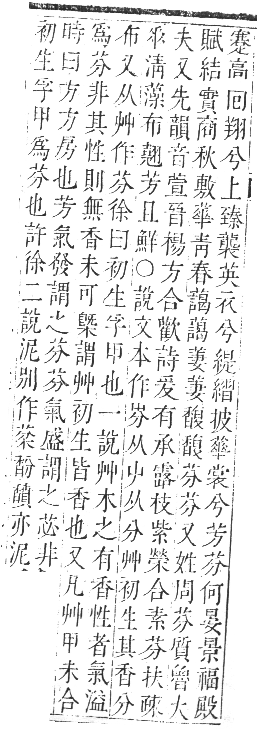 蹇高回翔兮上臻襲英衣兮緹䌌披華裳兮芳芬何晏景福殿
賦結實商秋敷華青春藹藹萋萋馥馥芬芬又姓周芬質魯大
夫又先韻音萱晉楊方合歡詩爰有承露枝紫榮合素芬扶疎
乖淸藻布翹芳且鮮○說文本作芬从屮从分艸初生其香分
布又从艸作芬徐曰初生孚甲也一說艸木之有香性者氣溢
爲芬非其性則無香未可槩謂艸初生皆香也又凡艸甲未合
時曰方方房也芳氣發謂之芬芬氣盛謂之苾非
初生孚甲爲芬也許徐二說泥别作棻馚馩亦泥